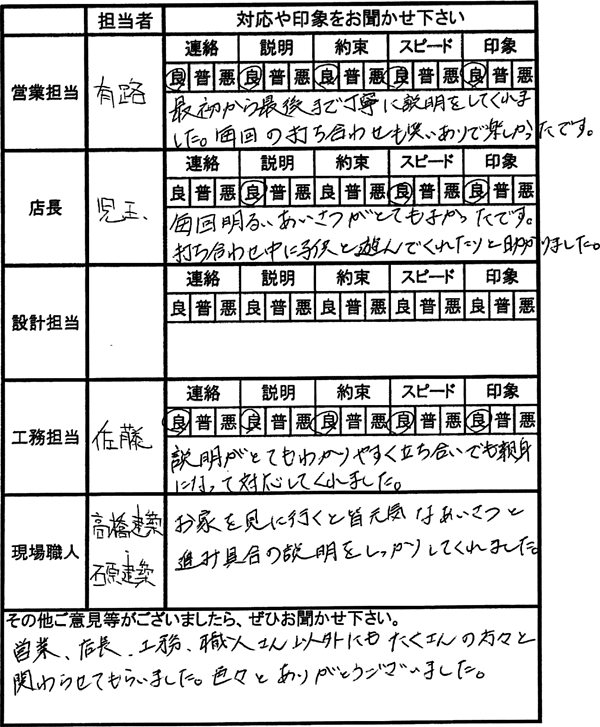 担当者 対応や印象をお聞かせ下さい
営業担当 有路
連絡 説明 約束 スピード 印象
良 普 悪 良 普 悪 良 普 悪 良 普 悪 良 普 悪
最初から最後まで丁寧に説明をしてくれま
した。毎回の打ち合わせも笑いありで楽しかったです。
店長 児玉
連絡 説明 約束 スピード 印象
良 普 悪 良 普 悪 良 普 悪 良 普 悪 良 普 悪
毎回明るいあいさつがとてもよかったです。
打ち合わせ中に子供と遊んでくれたりと助かりました。
設計担当
連絡 説明 約束 スピード 印象
良 普 悪 良 普 悪 良 普 悪 良 普 悪 良 普 悪
工務担当 佐藤
連絡 説明 約束 スピード 印象
良 普 悪 良 普 悪 良 普 悪 良 普 悪 良 普 悪
説明がとてもわかりやすく立ち合いでも親身
になって対応してくれました。
現場職人 高橋建築 石原建築
お家を見に行くと皆元気なあいさつと
進み具合の説明をしっかりしてくれました
その他ご意見等がございましたら、ぜひお聞かせ下さい。
営業、店長、工務、職人さん以外にもたくさんの方々と
関わらせてもらいました。色々とありがとうございました。